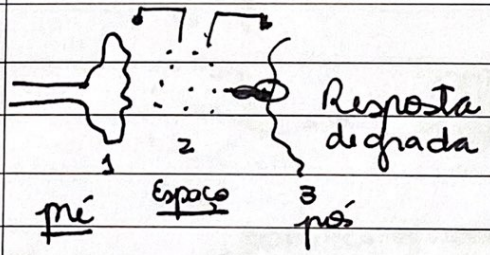 Resposta
degrada
1
2
3
pré
Espaço
pós